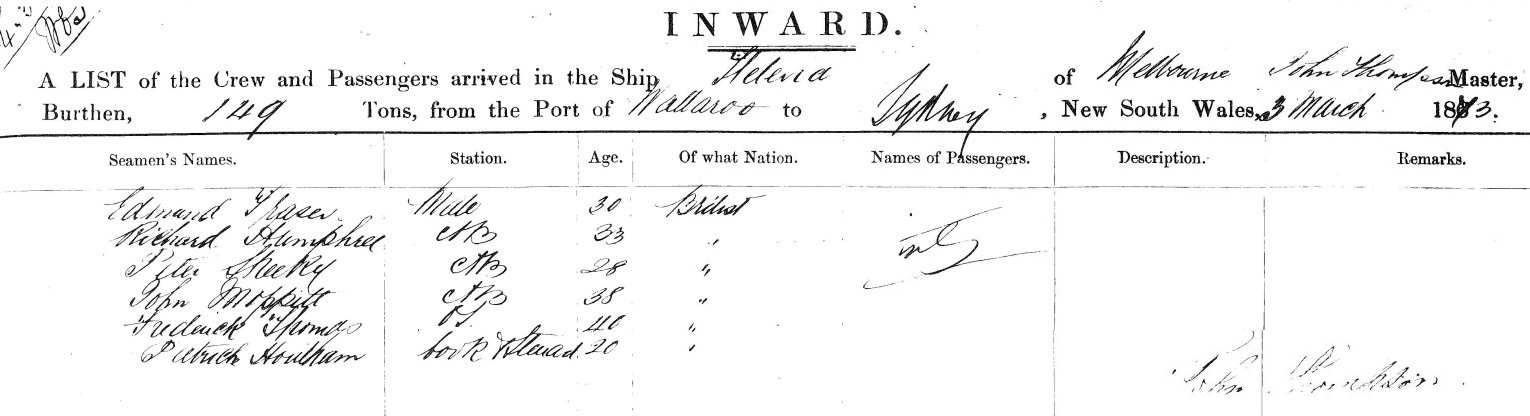 INWARD.
A LIST of the Crew and Passengers arrived in the Ship Helena of Melbourne John Thompson Master,
Burthen, 149 Tons, from the Port of Wallaroo to Sydney, New South Wales, 3 March 1873.
Seamen's Names. Station. Age. Of what Nation. Names of Passengers. Description. Remarks.
Edmund Fraser Mate 30 British
Richard Humphree AB 33 "
Peter Sheeky AB 28 "
John Moppitt AB 38 "
Frederick Thomas OS 40 "
Patrick Houlham Cook & Steward 20 "
John Thompson